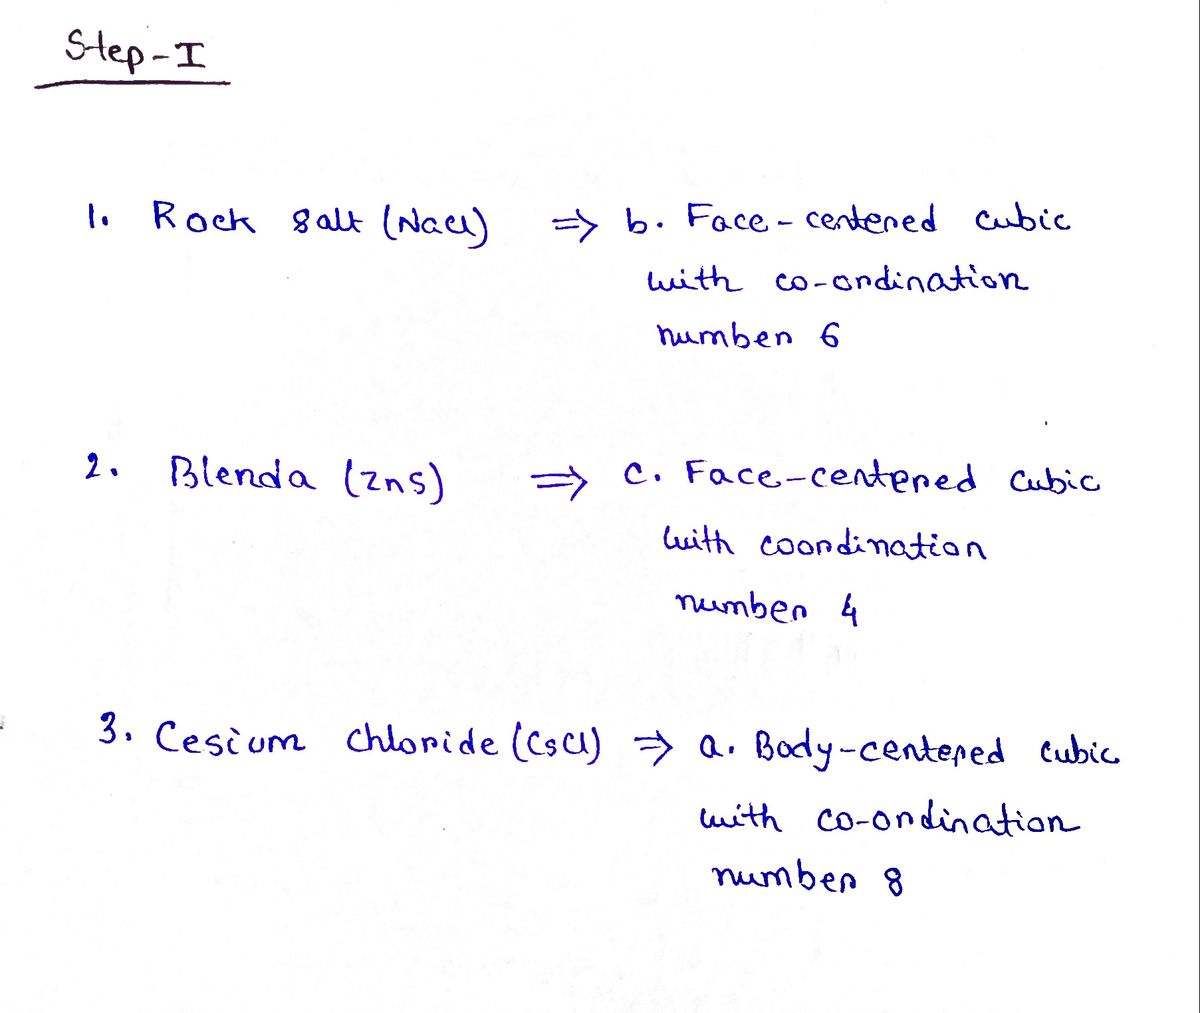 Step-I
1. Rock salt (NaCl) ⇒ b. Face-centered cubic
with co-ordination
number 6
2. Blenda (Zns) ⇒ c. Face-centered cubic
with coordination
number 4
3. Cesium chloride (CsCl) ⇒ a. Body-centered cubic
with co-ordination
number 8